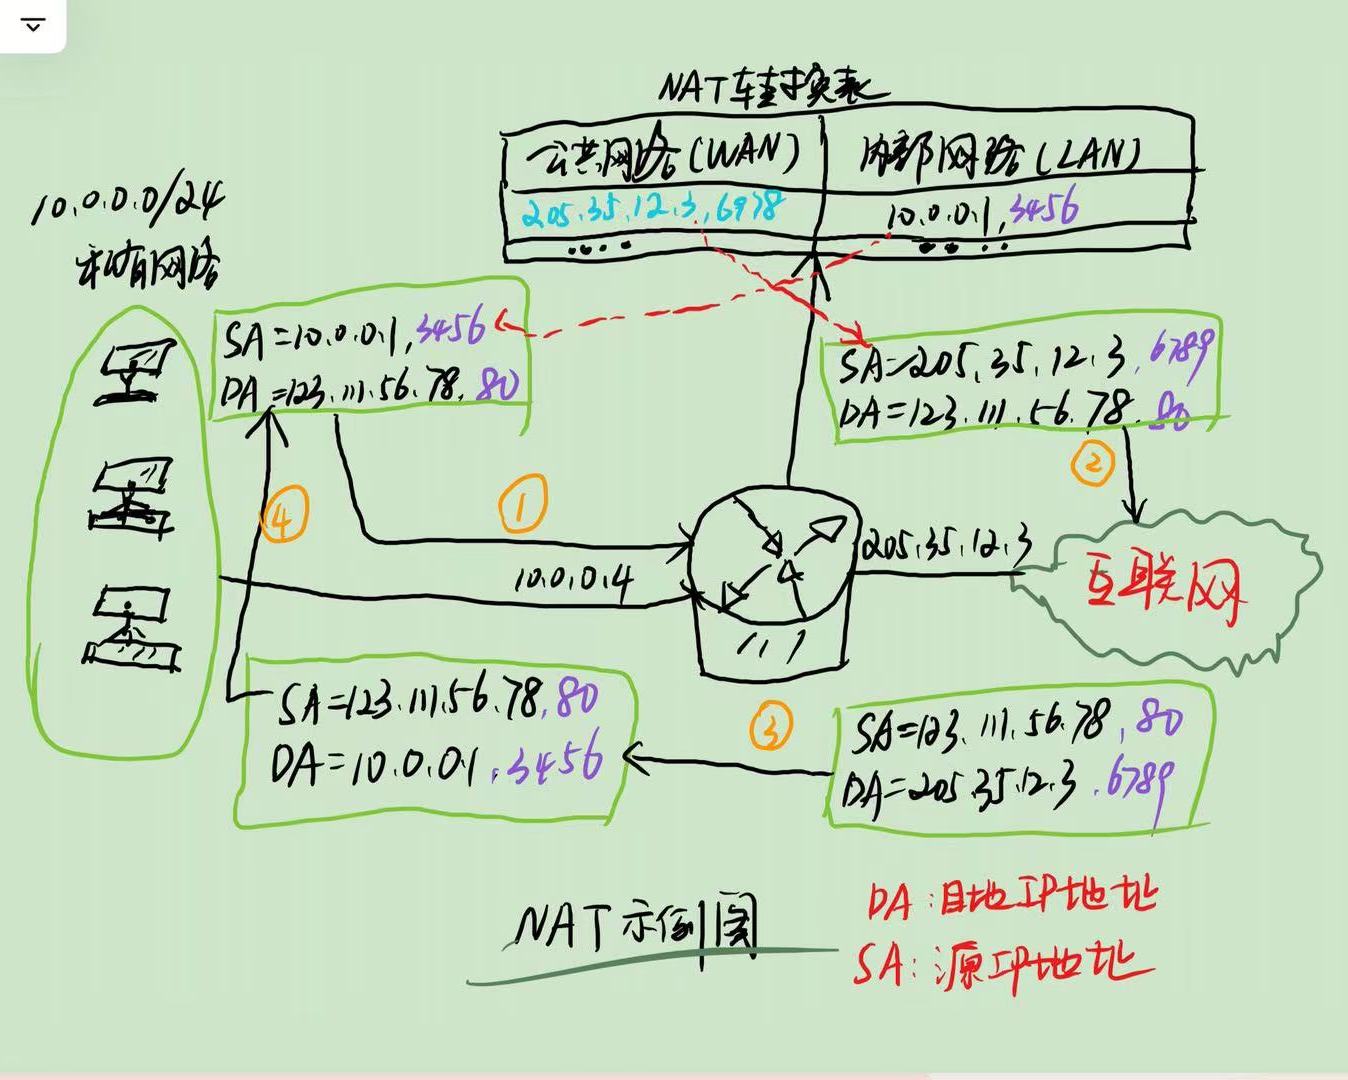 NAT转换表
公共网络(WAN) 内部网络(LAN)
205.35.12.3,6978 10.0.0.1,3456
10.0.0.0/24
私有网络
SA=10.0.0.1,3456
DA=123.111.56.78.80
SA=205.35.12.3.6789
DA=123.111.56.78.80
②
④
①
10.0.0.4
205.35.12.3
互联网
SA=123.111.56.78.80
DA=10.0.0.1.3456
③
SA=123.111.56.78,80
DA=205.35.12.3.6789
NAT示例图
DA:目地IP地址
SA:源IP地址